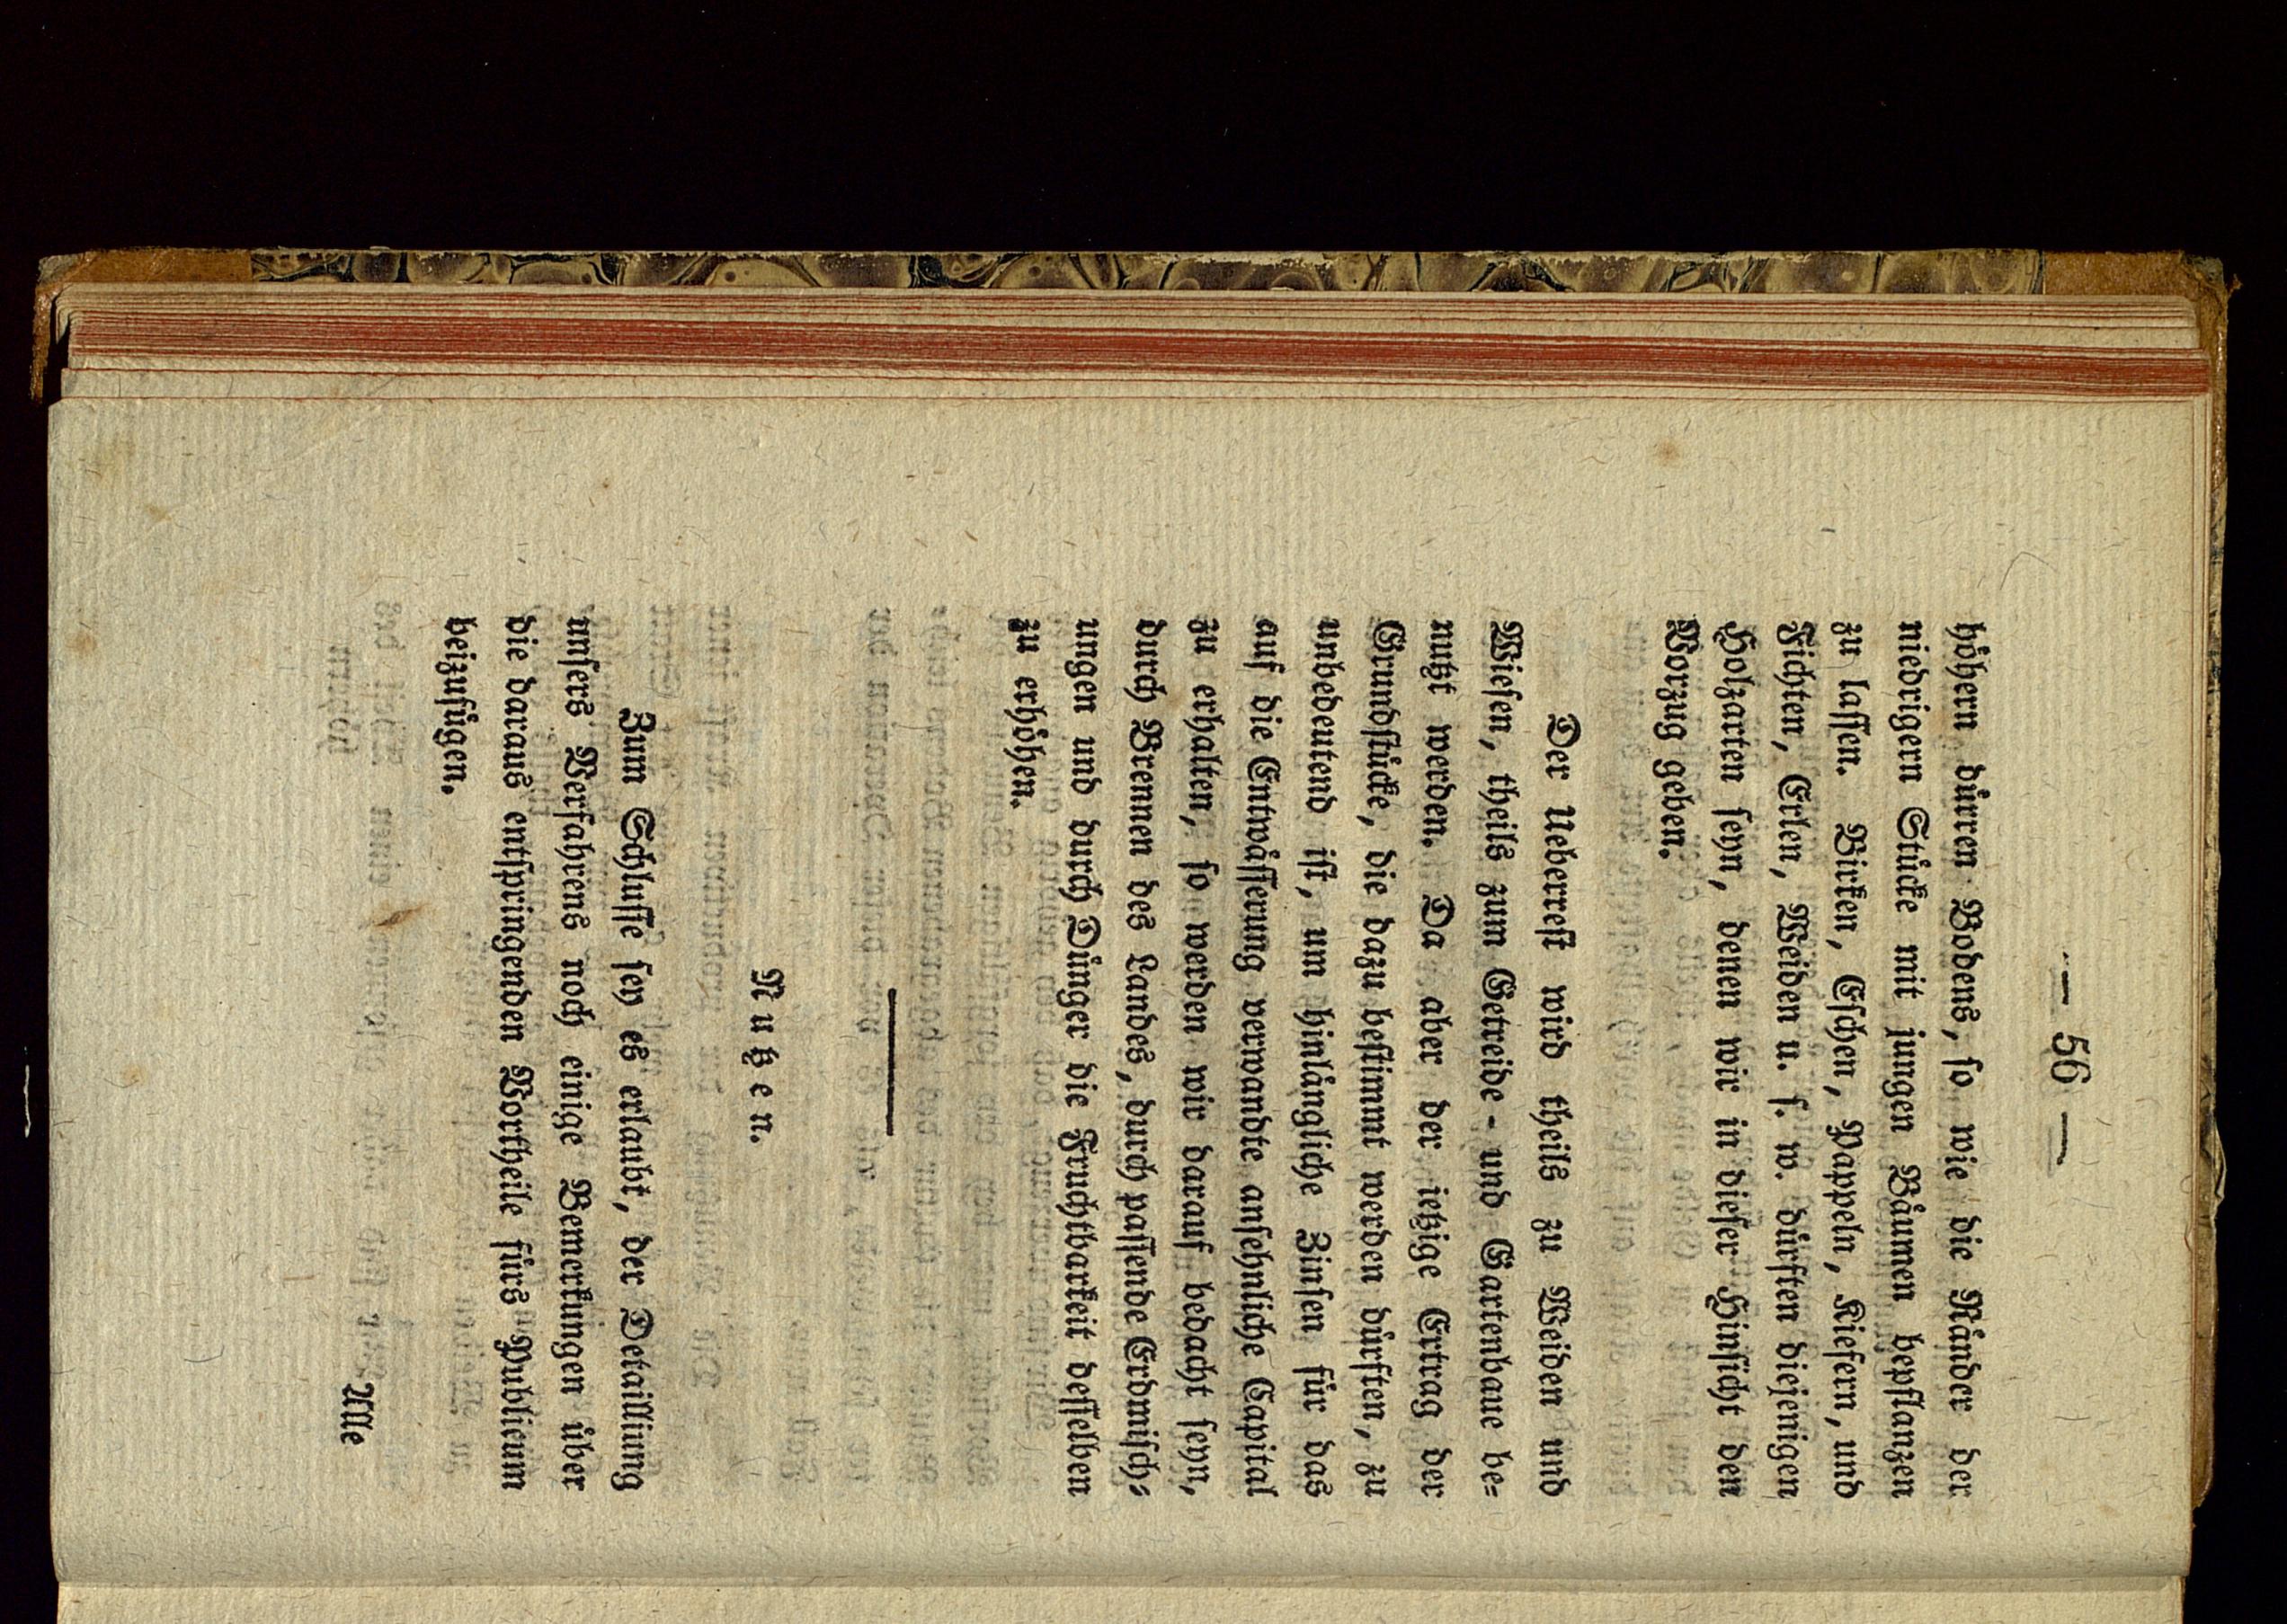 — 56 —
höhern dürren Bodens, so wie die Ränder der
niedrigern Stücke mit jungen Bäumen bepflanzen
zu lassen. Birken, Eschen, Pappeln, Kiefern, und
Fichten, Erlen, Weiden u. s. w. dürften diejenigen
Holzarten seyn, denen wir in dieser Hinsicht den
Vorzug geben.
Der Ueberrest wird theils zu Weiden und
Wiesen, theils zum Getreide- und Gartenbaue be=
nutzt werden. Da aber der ietzige Ertrag der
Grundstücke, die dazu bestimmt werden dürften, zu
unbedeutend ist, um hinlängliche Zinsen für das
auf die Entwässerung verwandte ansehnliche Capital
zu erhalten, so werden wir darauf bedacht seyn,
durch Brennen des Landes, durch passende Erdmisch=
ungen und durch Dünger die Fruchtbarkeit desselben
zu erhöhen.
Nutzen.
Zum Schlusse sey es erlaubt, der Detaillirung
unsers Verfahrens noch einige Bemerkungen über
die daraus entspringenden Vortheile fürs Publicum
beizufügen.
Alle